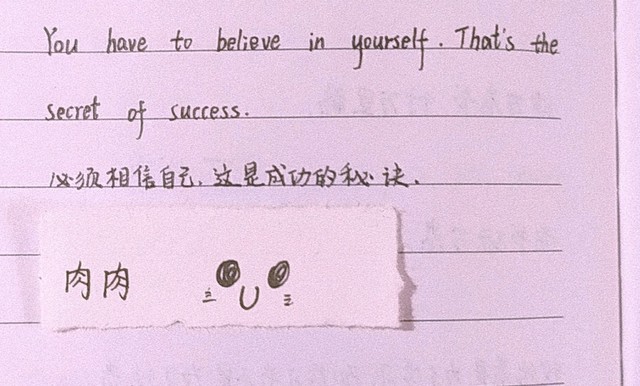 You have to believe in yourself. That's the
secret of success.
必须相信自己、这是成功的秘诀、
肉肉